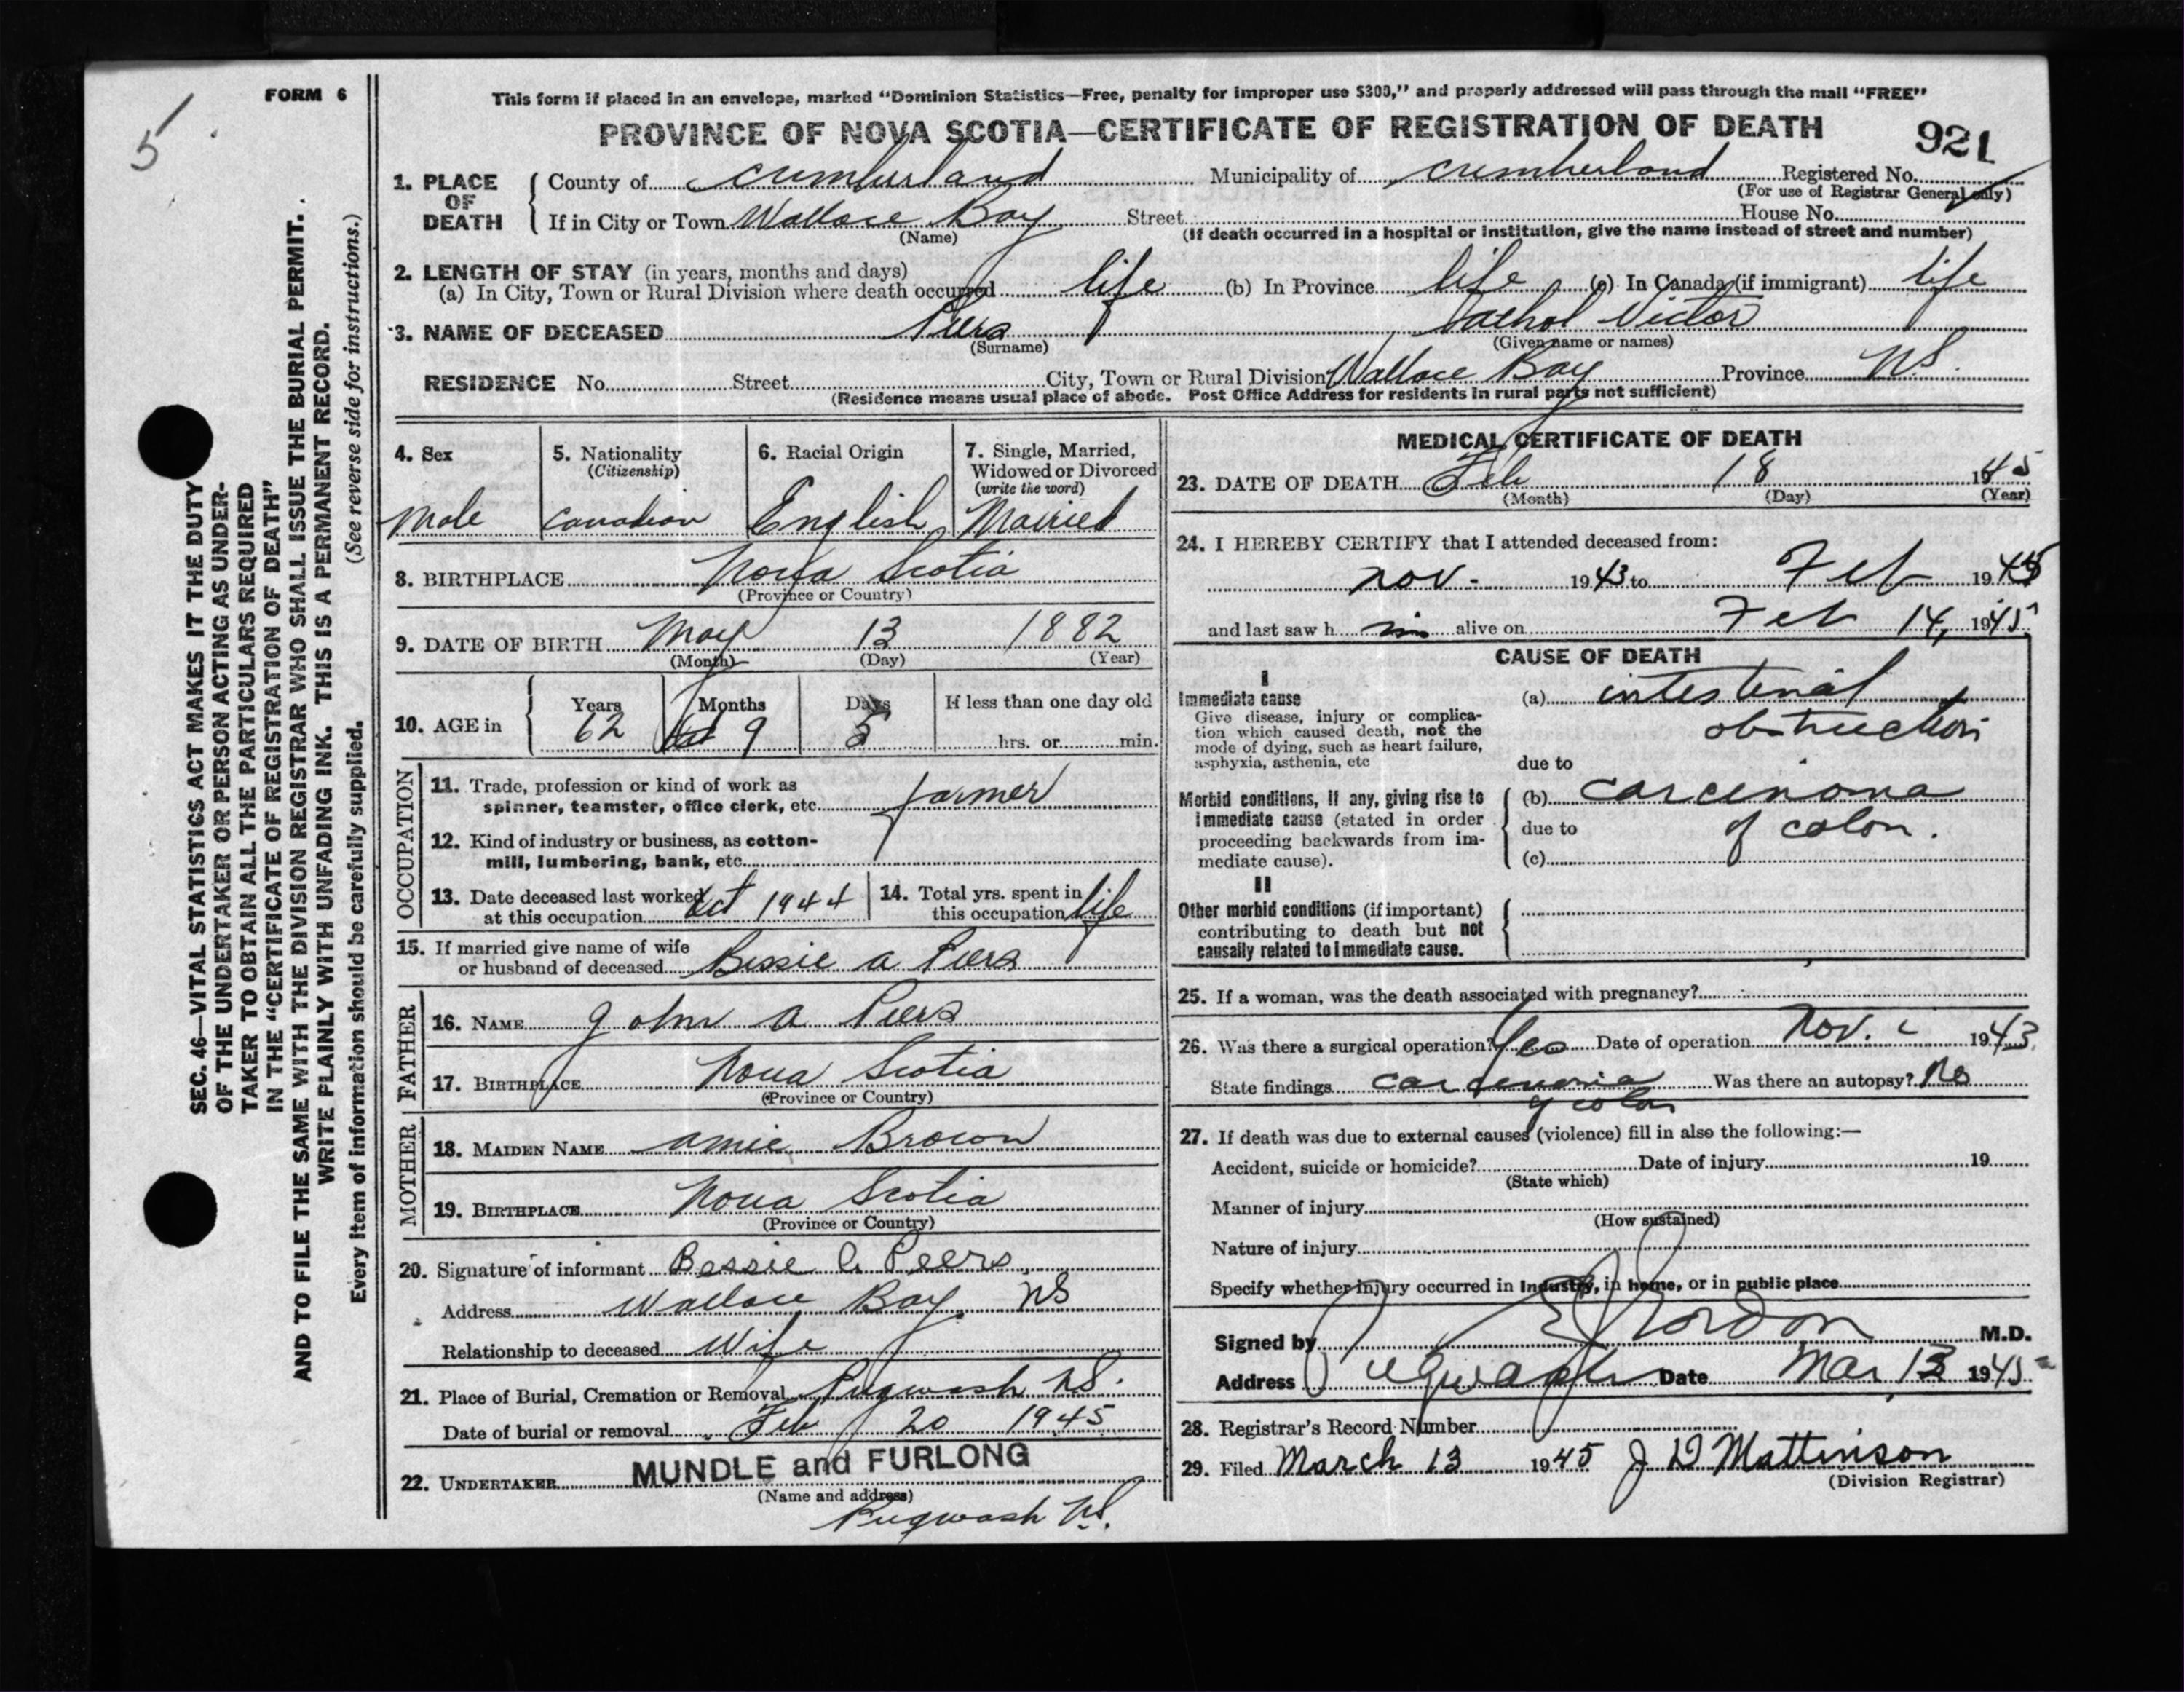 5
FORM 6
This form if placed in an envelope, marked "Dominion Statistics—Free, penalty for improper use $300," and properly addressed will pass through the mail "FREE"
PROVINCE OF NOVA SCOTIA—CERTIFICATE OF REGISTRATION OF DEATH
921
SEC. 46—VITAL STATISTICS ACT MAKES IT THE DUTY
OF THE UNDERTAKER OR PERSON ACTING AS UNDER-
TAKER TO OBTAIN ALL THE PARTICULARS REQUIRED
IN THE "CERTIFICATE OF REGISTRATION OF DEATH"
AND TO FILE THE SAME WITH THE DIVISION REGISTRAR WHO SHALL ISSUE THE BURIAL PERMIT.
WRITE PLAINLY WITH UNFADING INK. THIS IS A PERMANENT RECORD.
Every item of information should be carefully supplied. (See reverse side for instructions.)
1. PLACE OF DEATH County of Cumberland Municipality of Cumberland Registered No.
(For use of Registrar General only)
If in City or Town Wallace Bay Street House No.
(Name) (If death occurred in a hospital or institution, give the name instead of street and number)
2. LENGTH OF STAY (in years, months and days)
(a) In City, Town or Rural Division where death occurred life (b) In Province life (c) In Canada (if immigrant) life
3. NAME OF DECEASED Peers Victor
(Surname) (Given name or names)
RESIDENCE No. Street City, Town or Rural Division Wallace Bay Province NS.
(Residence means usual place of abode. Post Office Address for residents in rural parts not sufficient)
4. Sex
Male
5. Nationality
(Citizenship)
Canadian
6. Racial Origin
English
7. Single, Married,
Widowed or Divorced
(write the word)
Married
8. BIRTHPLACE Nova Scotia
(Province or Country)
9. DATE OF BIRTH May 13 1882
(Month) (Day) (Year)
10. AGE in Years Months Days If less than one day old
62 9 5 hrs. or min.
OCCUPATION
11. Trade, profession or kind of work as
spinner, teamster, office clerk, etc. farmer
12. Kind of industry or business, as cotton-
mill, lumbering, bank, etc.
13. Date deceased last worked
at this occupation Oct 1944
14. Total yrs. spent in
this occupation life
15. If married give name of wife
or husband of deceased Bessie A Peers
FATHER
16. NAME John A Peers
17. BIRTHPLACE Nova Scotia
(Province or Country)
MOTHER
18. MAIDEN NAME Amie Brown
19. BIRTHPLACE Nova Scotia
(Province or Country)
20. Signature of informant Bessie A Peers
Address Wallace Bay NS
Relationship to deceased Wife
21. Place of Burial, Cremation or Removal Pugwash NS.
Date of burial or removal Feb 20 1945
22. UNDERTAKER MUNDLE and FURLONG
(Name and address)
Pugwash NS.
MEDICAL CERTIFICATE OF DEATH
23. DATE OF DEATH Feb 18 1945
(Month) (Day) (Year)
24. I HEREBY CERTIFY that I attended deceased from:
Nov. 1943 to Feb 1945
and last saw him alive on Feb 14, 1945
CAUSE OF DEATH
I
Immediate cause
Give disease, injury or complica-
tion which caused death, not the
mode of dying, such as heart failure,
asphyxia, asthenia, etc
(a) intestinal
obstruction
due to
Morbid conditions, if any, giving rise to
immediate cause (stated in order
proceeding backwards from im-
mediate cause).
(b) carcinoma
due to of colon.
(c)
II
Other morbid conditions (if important)
contributing to death but not
causally related to immediate cause.
25. If a woman, was the death associated with pregnancy?
26. Was there a surgical operation? Yes Date of operation Nov. 1943
State findings carcinoma Was there an autopsy? No
of colon
27. If death was due to external causes (violence) fill in also the following:—
Accident, suicide or homicide? Date of injury 19
(State which)
Manner of injury
(How sustained)
Nature of injury
Specify whether injury occurred in Industry, in home, or in public place
Signed by Gordon M.D.
Address Pugwash Date Mar 13 1945
28. Registrar's Record Number
29. Filed March 13 1945 J D Mattinson
(Division Registrar)